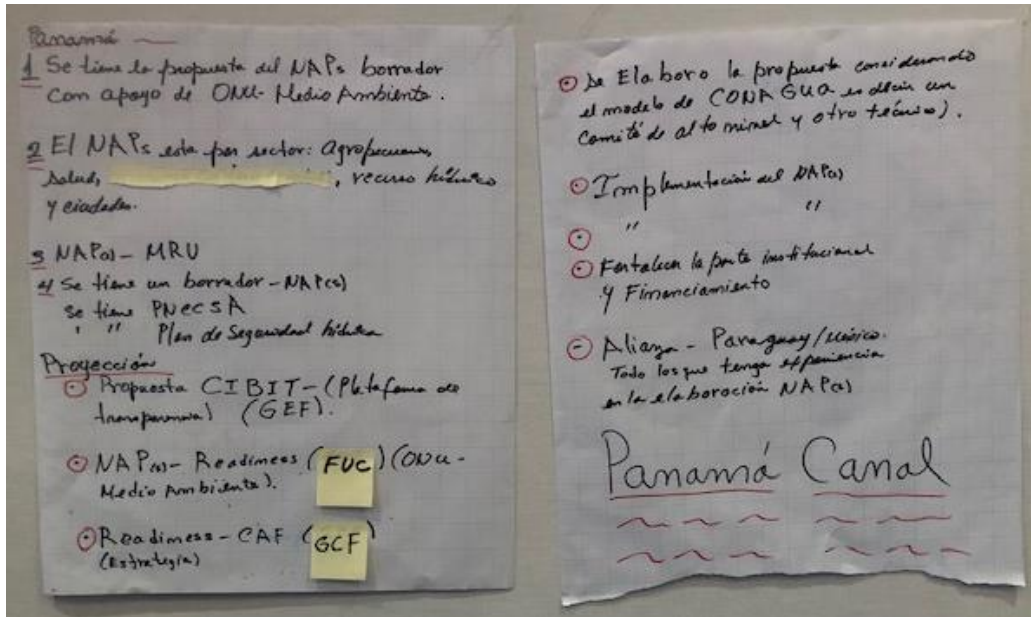 Panamá
1 Se tiene la propuesta del NAPs borrador
con apoyo de ONU-Medio Ambiente.
2 El NAPs esta por sector: agropecuario,
salud, , recurso hídrico
y ciudades.
3 NAP(s) - MRU
4 Se tiene un borrador - NAP(s)
Se tiene PNECSA
" " Plan de Seguridad hídrica
Proyección
Propuesta CIBIT - (Plataforma de
transparencia) (GEF).
NAP(s) - Readiness (FUC) (ONU-
Medio Ambiente).
Readiness - CAF (GCF)
(Estrategia)
Se Elaboro la propuesta considerando
el modelo de CONAGUA es decir un
Comité de alto nivel y otro técnico).
Implementación del NAP(s)
" "
Fortalecer la parte institucional
y Financiamiento
Alianza - Paraguay/México.
Todo los que tenga experiencia
en la elaboración NAP(s)
Panamá Canal